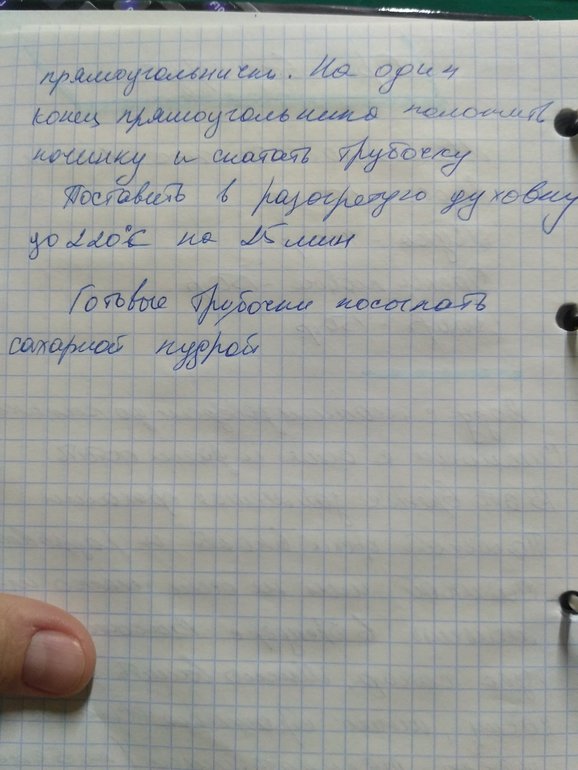 прямоугольнички. На один
конец прямоугольника положить
начинку и скатать трубочку
Поставить в разогретую духовку
до 220°С на 25 мин
Готовые трубочки посыпать
сахарной пудрой